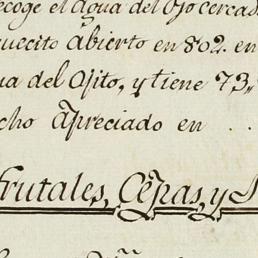 ecoge el Agua del Ojo cercad
uecito abierto en 802. en
ua del Ojito, y tiene 73,
cho apreciado en . .
frutales, Cepas, y